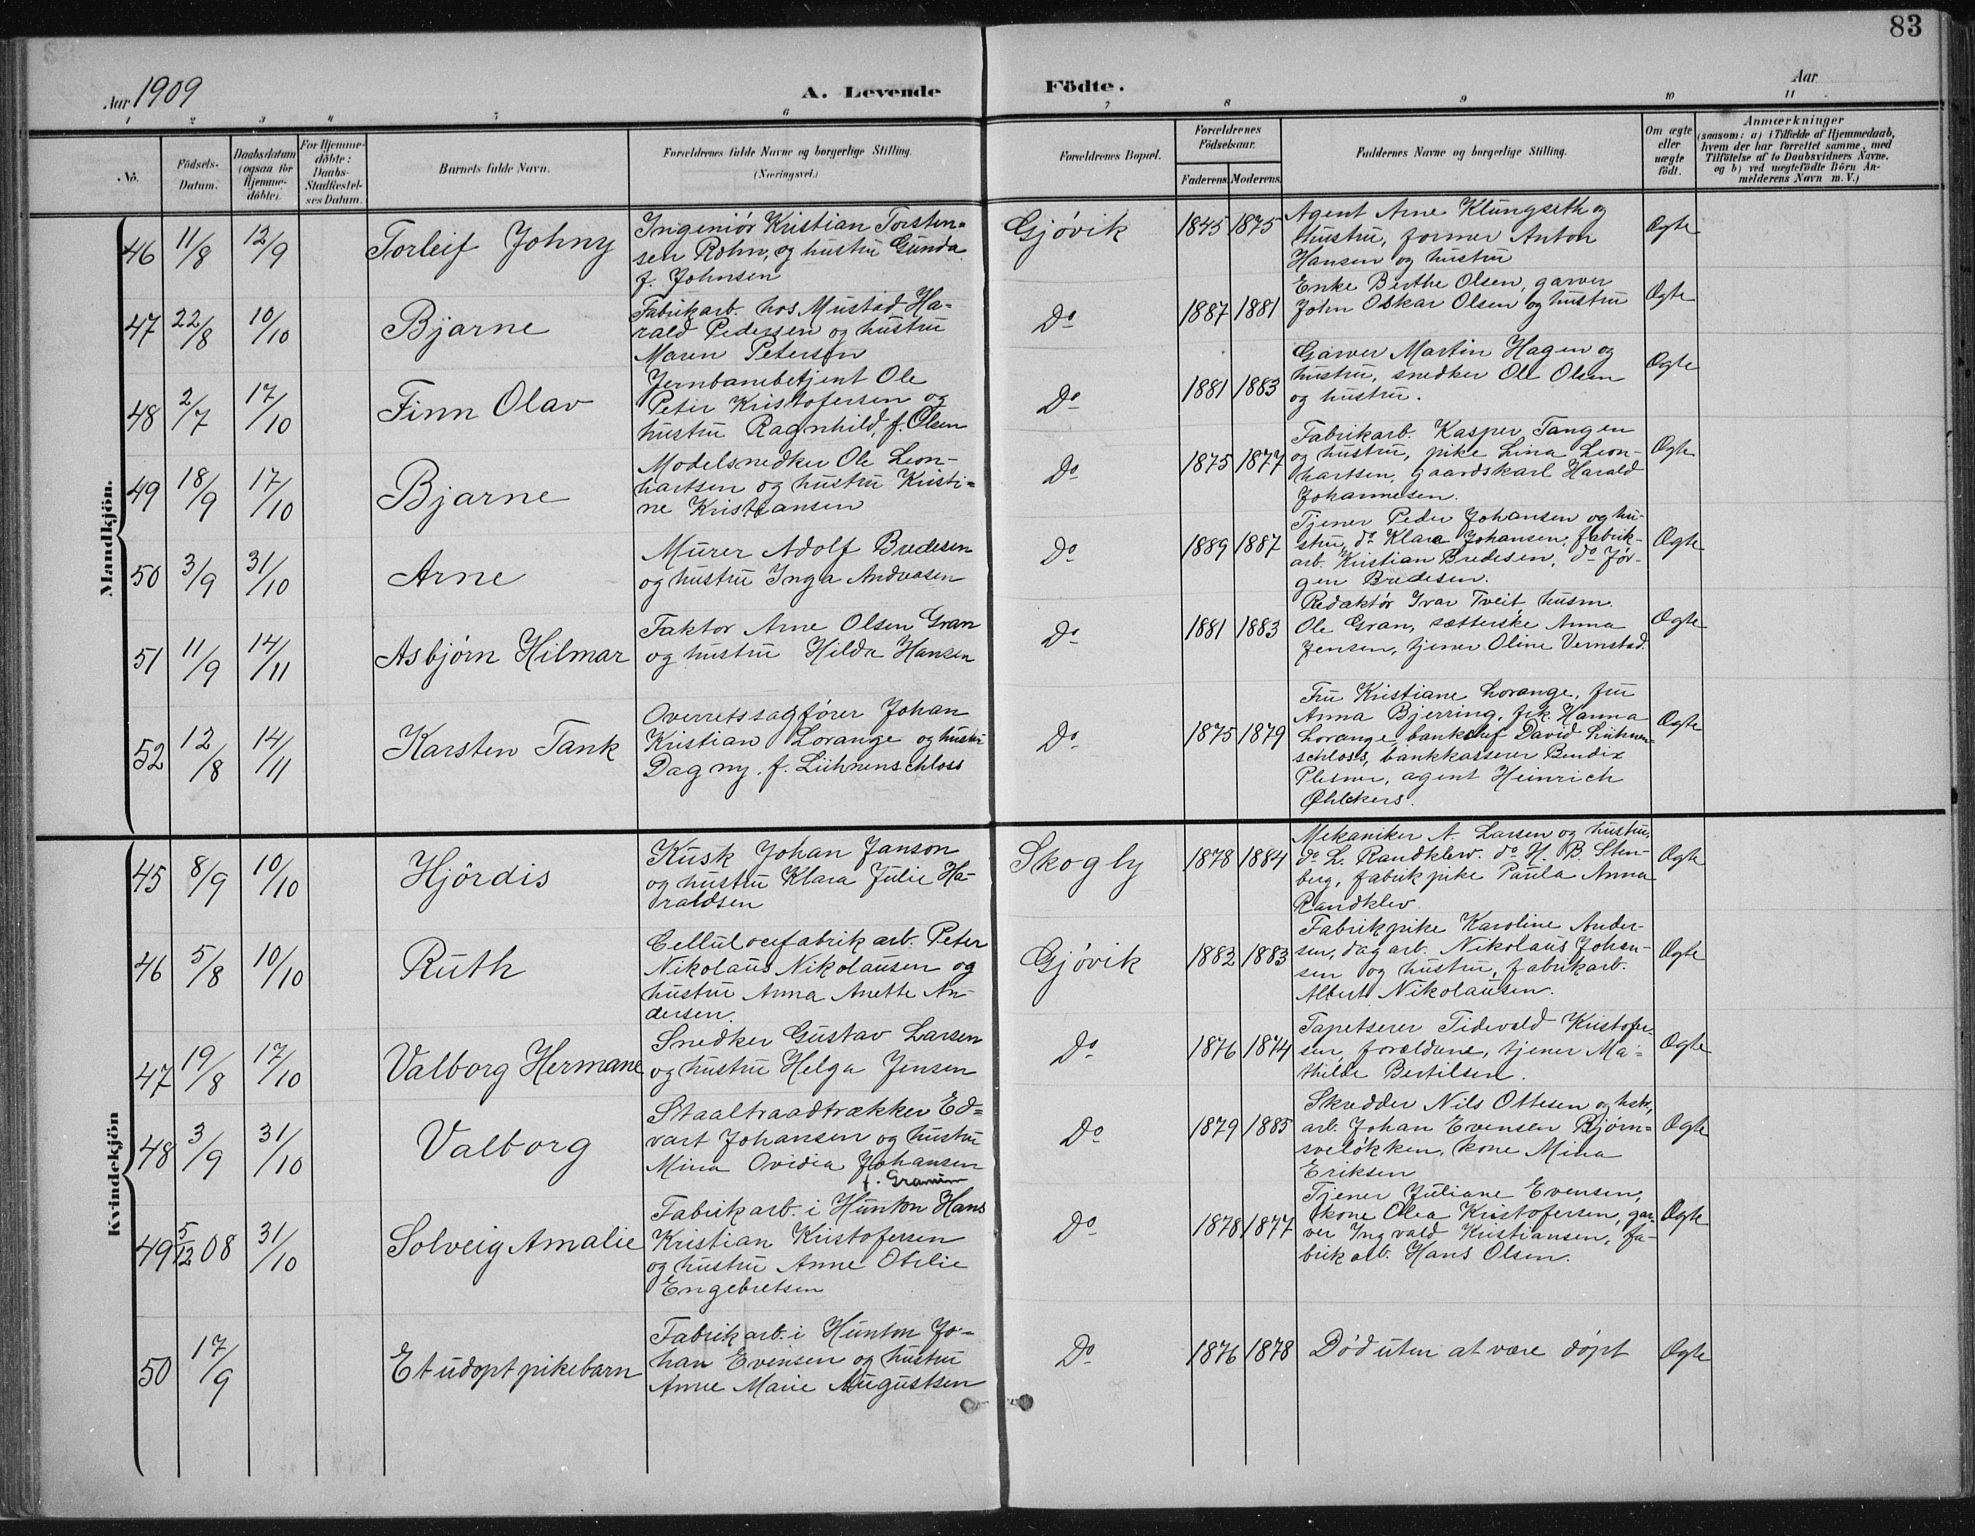 83
Aar 1909
A. Levende
Födte.
Aar
1 2 3 4 5 6 7 8 9 10 11
No.
Födsels-Datum.
Daabsdatum (ogsaa for Hjemme-döbte).
For Hjemme-döbte: Daabs-Stadfæstel-ses Datum.
Barnets fulde Navn.
Forældrenes fulde Navne og borgerlige Stilling.
(Næringsvei.)
Forældrenes Bopæl.
Forældrenes Födselsaar.
Faderens. Moderens.
Faddernes Navne og borgerlige Stilling.
Om ægte eller uægte födt.
Anmærkninger
(saasom: a) i Tilfælde af Hjemmedaab,
hvem der har forrettet samme, med
Tilföielse af to Daabsvidners Navne.
og b) ved uægtefödte Börn An-
melderens Navn m. V.)
Mandkjön.
46 11/8 12/9 Torleif Johny
Ingeniör Kristian Torsten-
sen Rohn, og hustru Gunda
f. Johnsen
Gjövik 1845 1875
Agent Arne Klungseth og
hustru, former Anton
Hansen og hustru
Ægte
47 22/8 10/10 Bjarne
Fabrikarb. hos Mustad Ha-
rald Pedersen og hustru
Maren Petersen
Do 1887 1881
Enke Berthe Olsen, garver
John Oskar Olsen og hustru
Ægte
48 2/7 17/10 Finn Olav
Jernbanebetjent Ole
Peter Kristofersen og
hustru Ragnhild, f. Olsen
Do 1881 1883
Garver Martin Hagen og
hustru, snedker Ole Olsen
og hustru.
Ægte
49 18/9 17/10 Bjarne
Modelsnedker Ole Leon-
hartsen og hustru Kristi-
ne Kristiansen
Do 1875 1877
Fabrikarb. Kasper Tangen
og hustru, pike Lina Leon-
hartsen, gaardskarl Harald
Johannesen.
Ægte
50 3/9 31/10 Arne
Murer Adolf Bredesen
og hustru Inga Andreasen
Do 1889 1887
Tjener Peder Johansen og hu-
stru, do Klara Johansen, fabrik-
arb. Kristian Bredesen, do Jör-
gen Bredesen.
Ægte
51 11/9 14/11 Asbjørn Hilmar
Faktor Arne Olsen Gran
og hustru Hilda Hansen
Do 1881 1883
Redaktør Ivar Tveit, husm.
Ole Gran, sætterske Anna
Jensen, tjener Oline Vernstad.
Ægte
52 12/8 14/11 Karsten Tank
Overretssagfører Johan
Kristian Lorange og hustru
Dagny, f. Lühnenschloss
Do 1875 1879
Fru Kristiane Lorange, fru
Anna Bjerring, frk. Hanna
Lorange, bankchef David Lühnen-
schloss, bankkasserer Bendix
Plesner, agent Heinrich
Øhlckers.
Ægte
Kvindekjön
45 8/9 10/10 Hjördis
Kusk Johan Janson
og hustru Klara Julie Ha-
raldsen
Skogly 1878 1884
Mekaniker A. Larsen og hustru,
do L. Randklev. do H. B. Sten-
berg, fabrikpike Paula Anna
Randklev
Ægte
46 5/8 10/10 Ruth
Cellulosefabrikarb. Peter
Nikolaus Nikolausen og
hustru Anna Anette An-
dersen.
Gjøvik 1882 1883
Fabrikpike Karoline Ander-
sen, dagarb. Nikolaus Johan-
sen og hustru, fabrikarb.
Albert Nikolausen.
Ægte
47 19/8 17/10 Valborg Hermane
Snedker Gustav Larsen
og hustru Helga Jensen
Do 1876 1874
Tapetserer Tidevald Kristofer-
sen, forældrene, tjener Ma-
thilde Bertilsen.
Ægte
48 3/9 31/10 Valborg
Staaltraadtrækker Ed-
vart Johansen og hustru
Mina Ovidia Johansen
f. Granum
Do 1879 1885
Skredder Nils Ottesen og hstr.,
arb. Johan Evensen Bjørn-
sveløkken, kone Mina
Eriksen
Ægte
49 5/12 08 31/10 Solveig Amalie
Fabrikarb. i Hunton Hans
Kristian Kristofersen
og hustru Anne Otelie
Engebretsen
Do 1878 1877
Tjener Juliane Evensen,
kone Olea Kristofersen, gar-
ver Ingvald Kristiansen, fa-
brikarb. Hans Olsen.
Ægte
50 17/9 Et udøpt pikebarn
Fabrikarb. i Hunton Jo-
han Evensen og hustru
Anne Marie Augustsen
Do 1876 1878
Død uten at være døpt
Ægte